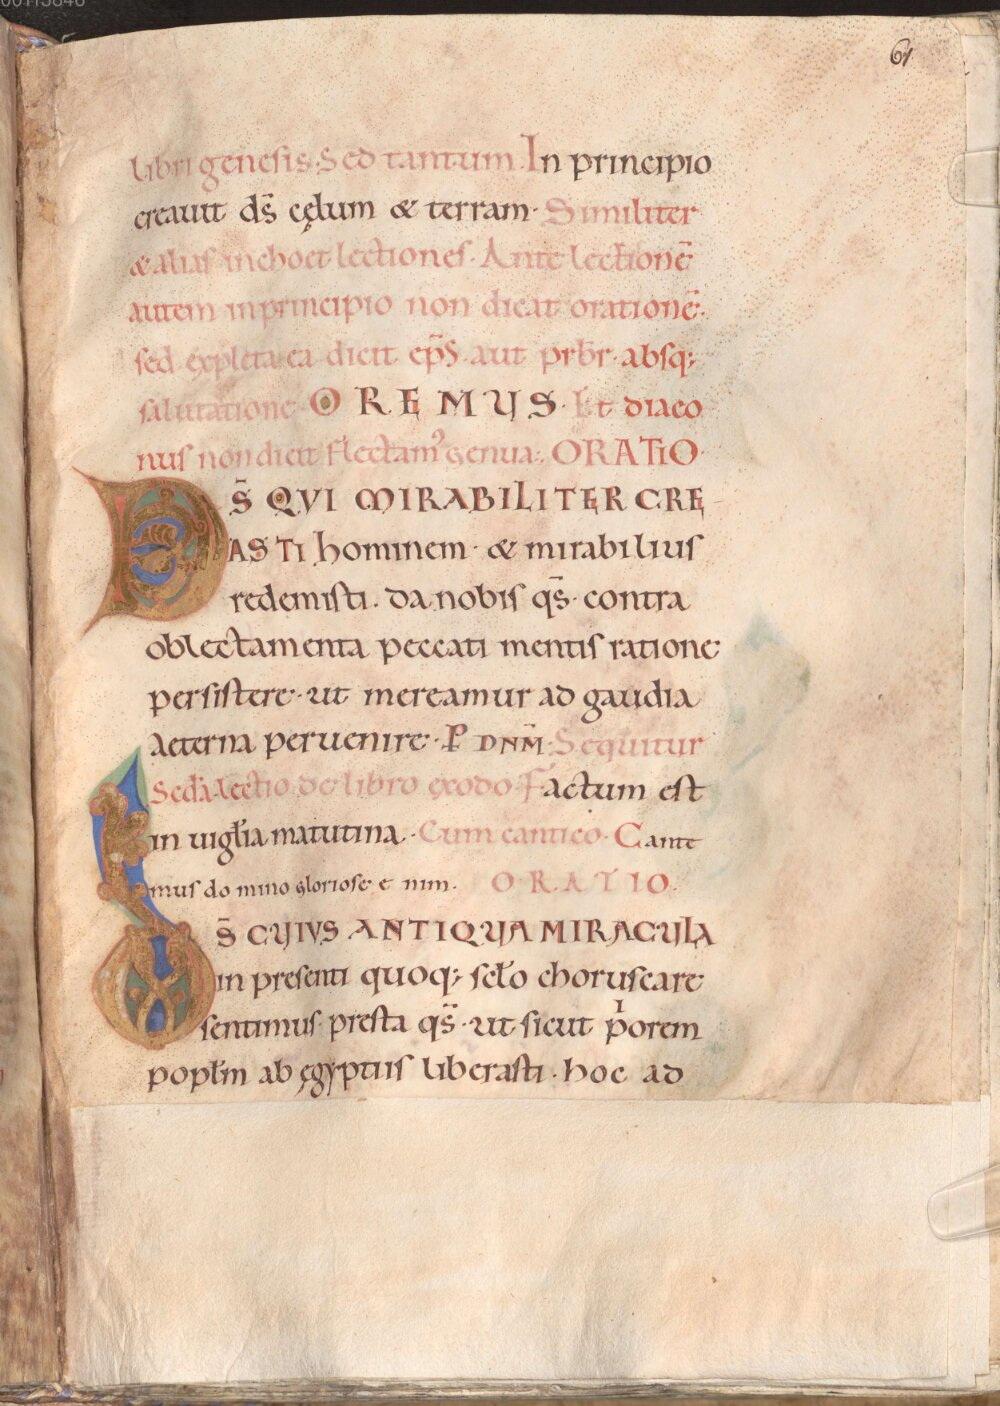 61
libri genesis. Sed tantum. In principio
creauit dš cęlum & terram. Similiter
& alias inchoet lectiones. Ante lectionē
autem in principio non dicat orationē.
sed expleta ea dicit ep̄s. aut prb̄r. absq;
salutatione OREMUS. Et diaco
nus non dicit flectam᾽ genua. ORATIO.
DS̄ QVI MIRABILITER CRE
ASTI hominem. & mirabilius
redemisti. da nobis qš. contra
oblectamenta peccati mentis ratione
persistere. ut mereamur ad gaudia
aeterna peruenire. P DNM̄. Sequitur
Secd̄a lectio de libro exodo. Factum est
in uigł̄ia matutina. Cum cantico. Cante
mus domino gloriose enim. ORATIO.
DS̄ CUIVS ANTIQUA MIRACULA
in presenti quoq; scł̄o choruscare
sentimus. presta qš. ut sicut p̍orem
popł̄m ab ęgyptiis liberasti. hoc ad